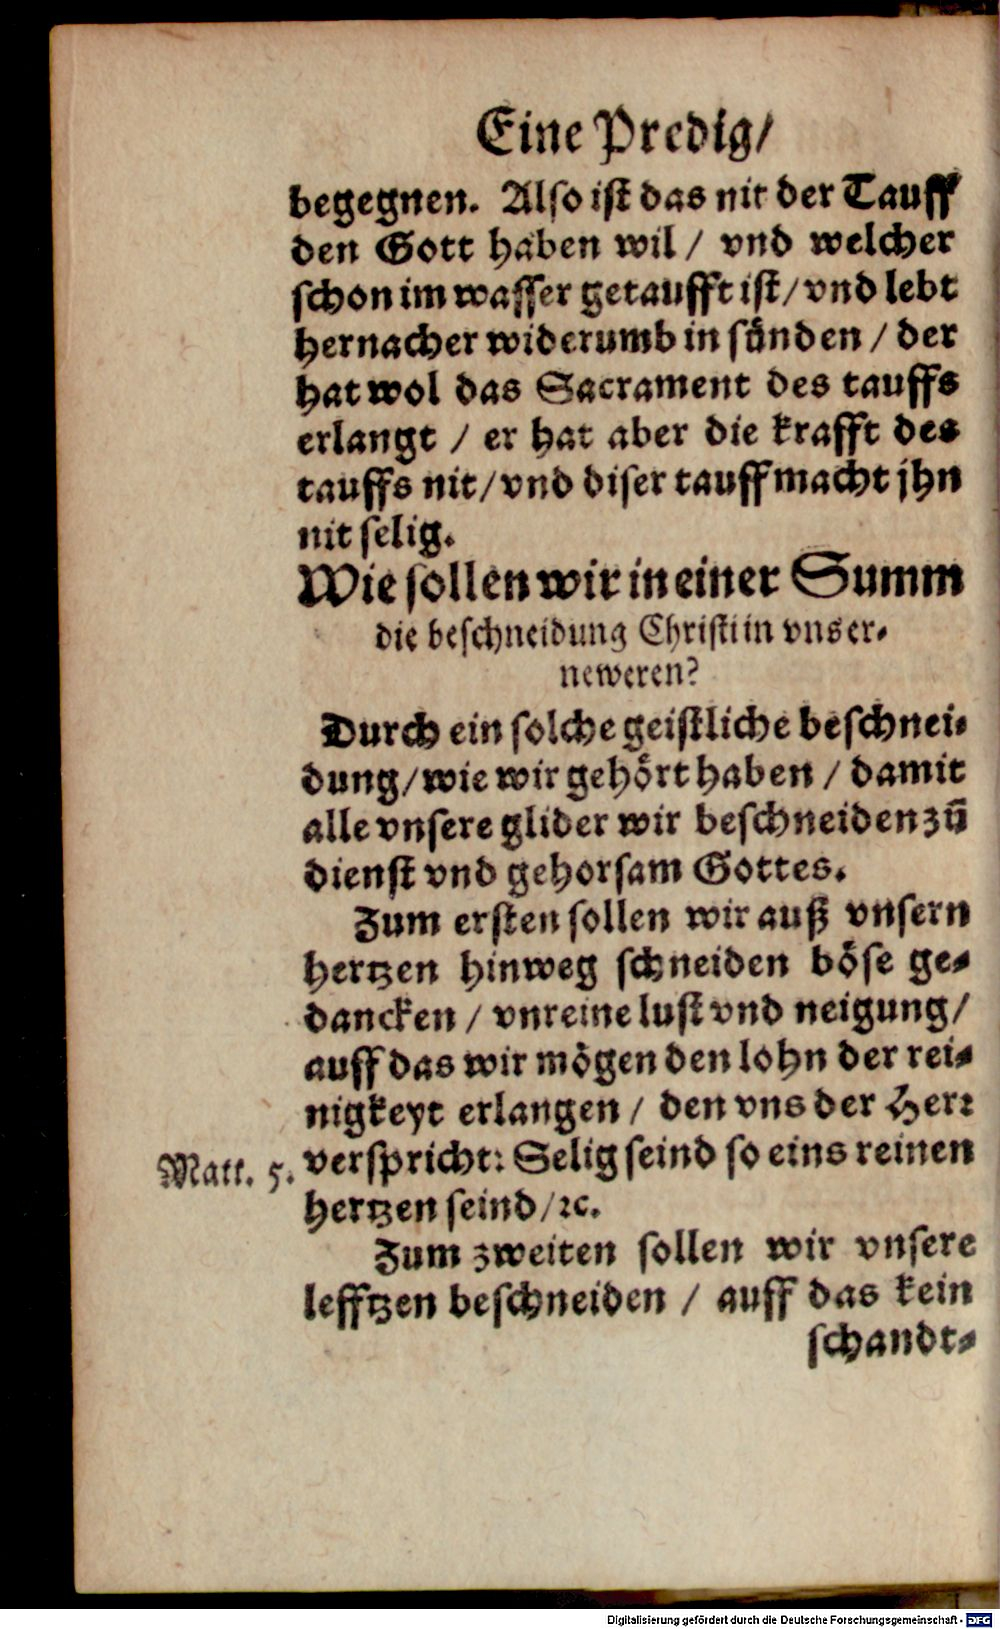 Eine Predig/
begegnen. Also ist das nit der Tauff
den Gott haben wil / vnd welcher
schon im wasser getaufft ist/vnd lebt
hernacher widerumb in sünden / der
hat wol das Sacrament des tauffs
erlangt / er hat aber die krafft des
tauffs nit/vnd diser tauff macht jhn
nit selig.
Wie sollen wir in einer Summ
die beschneidung Christi in vns er-
neweren?
Durch ein solche geistliche beschnei-
dung/wie wir gehört haben / damit
alle vnsere glider wir beschneiden zů
dienst vnd gehorsam Gottes.
Zum ersten sollen wir auß vnsern
hertzen hinweg schneiden böse ge-
dancken / vnreine lust vnd neigung/
auff das wir mögen den lohn der rei-
nigkeyt erlangen / den vns der Herr
Matt. 5. verspricht: Selig seind so eins reinen
hertzen seind/ꝛc.
Zum zweiten sollen wir vnsere
lefftzen beschneiden / auff das kein
schandt-
Digitalisierung gefördert durch die Deutsche Forschungsgemeinschaft - DFG